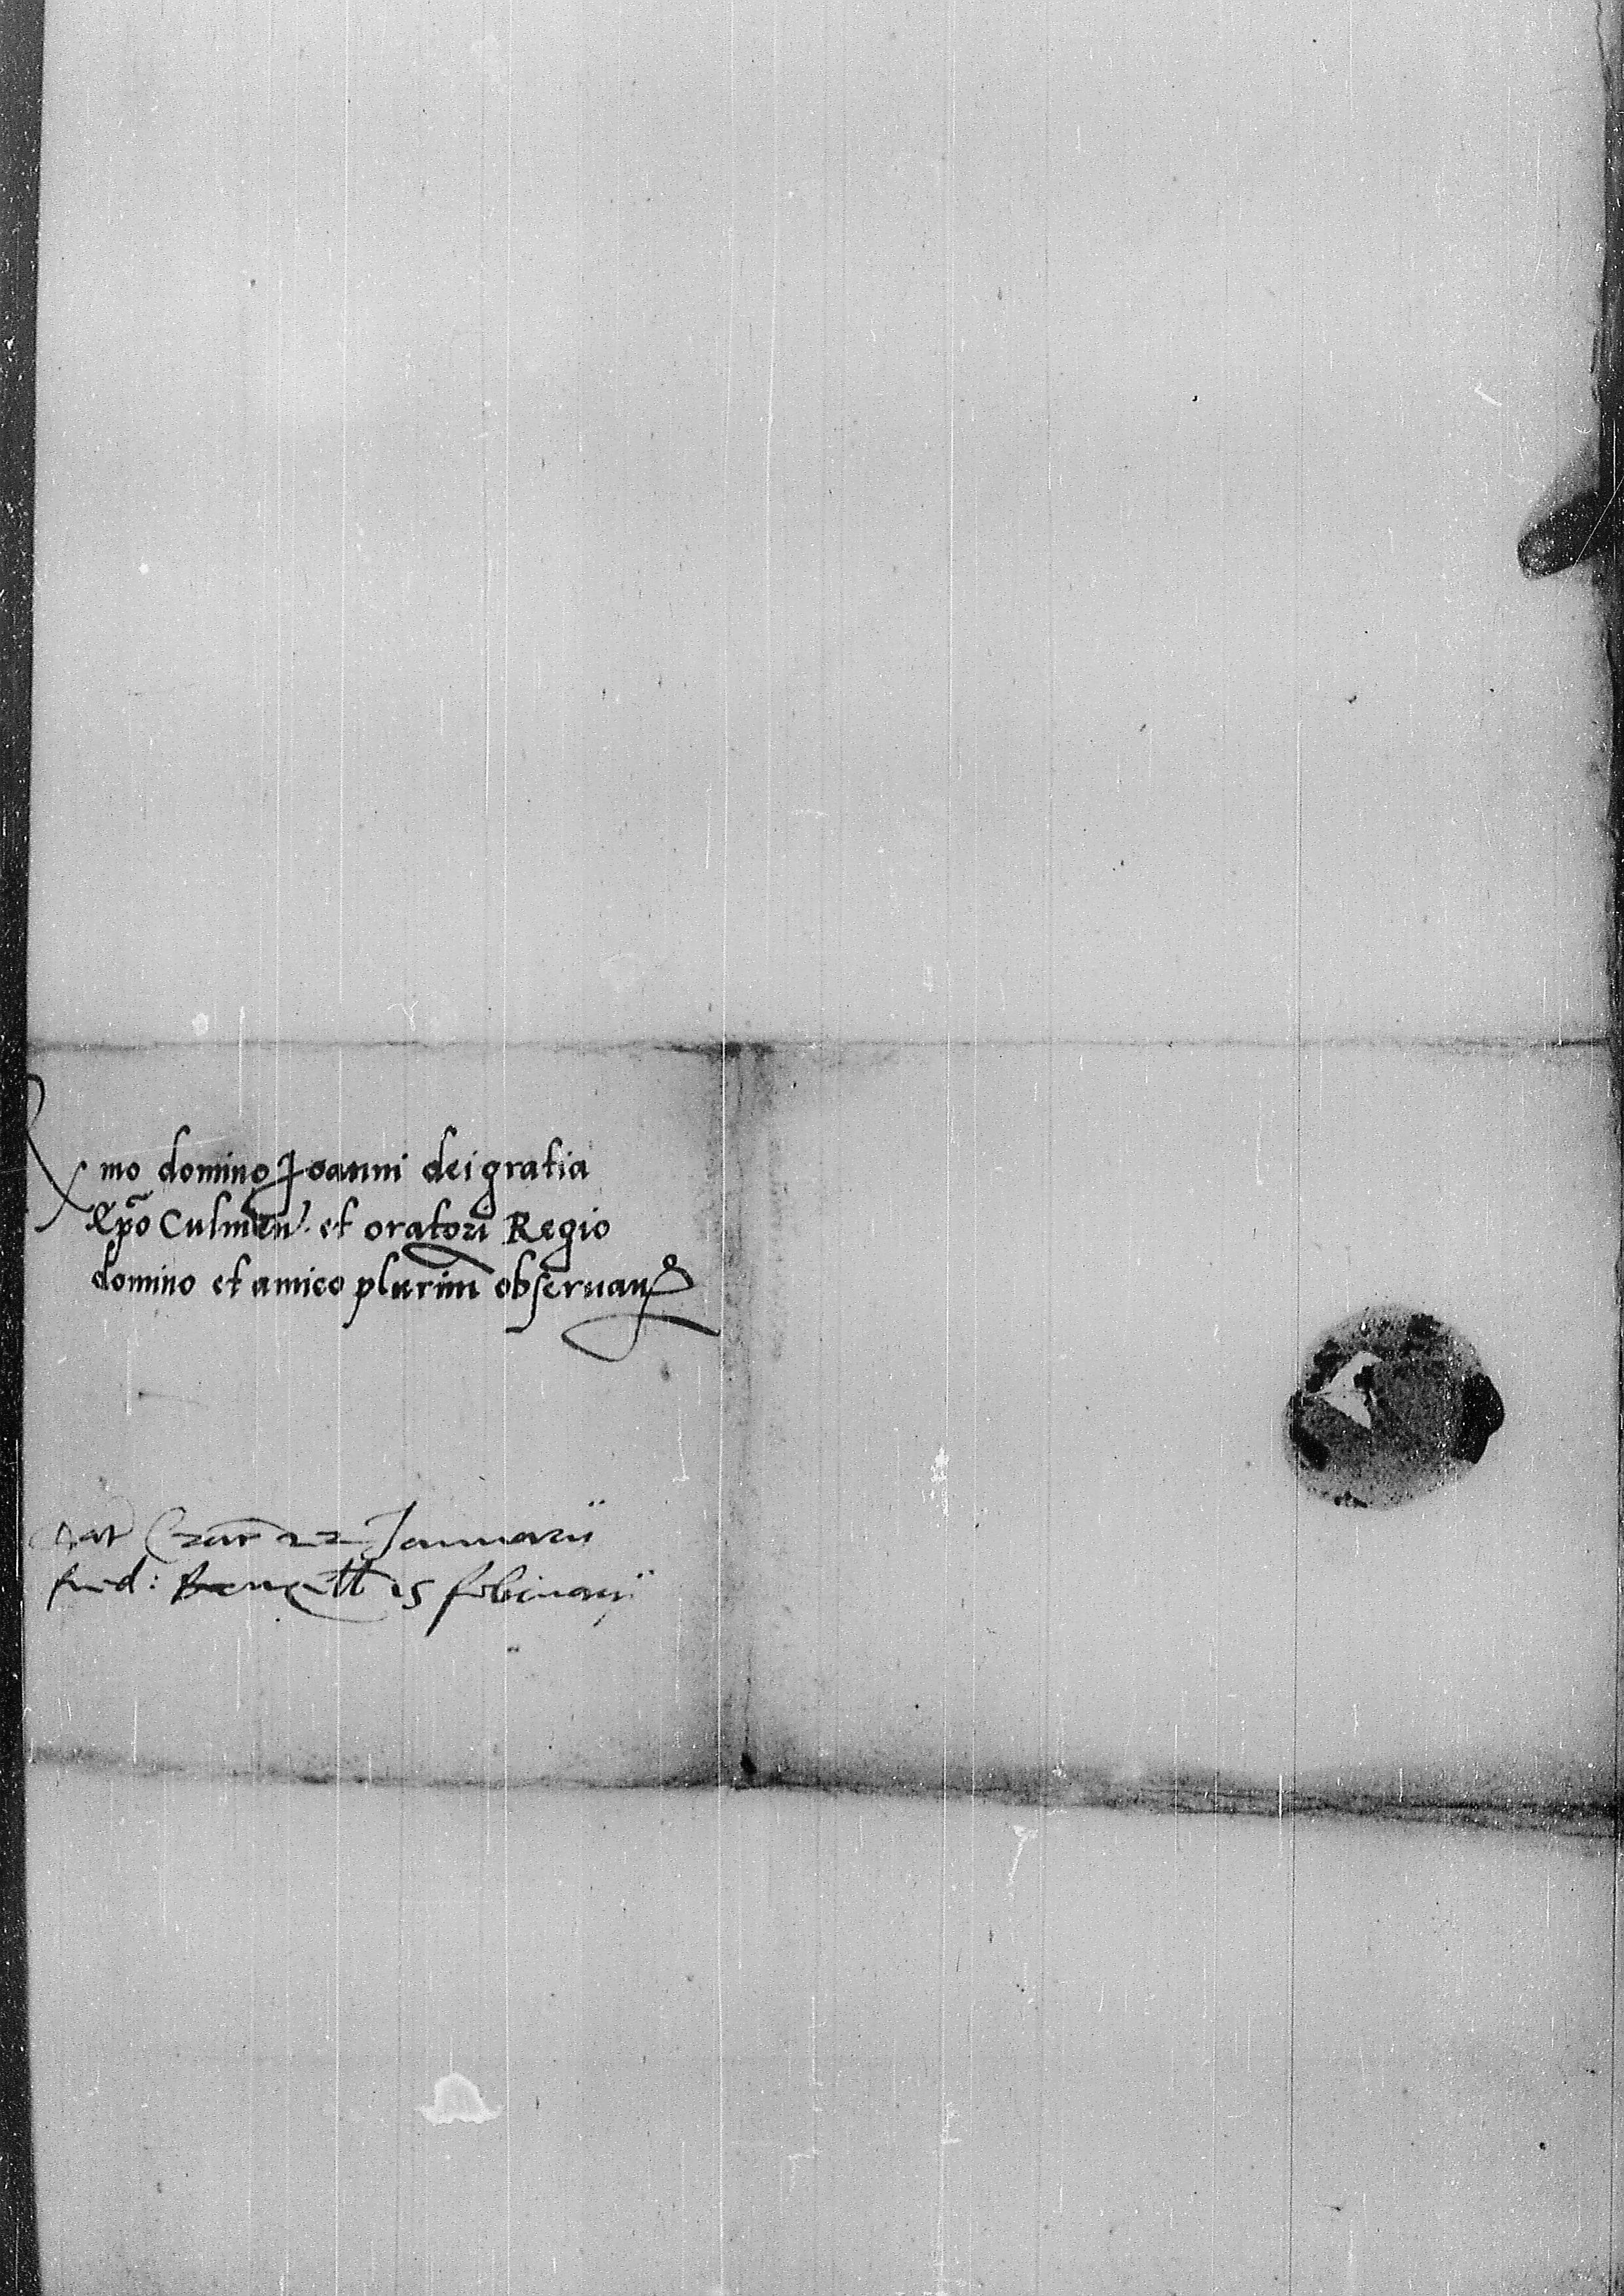 Rmo domino Joanni dei gratia
Epo Culmen. et oratori Regio
domino et amico plurim observan
Dat Crac 22 Januarii
Red: Bruxell 15 februarii